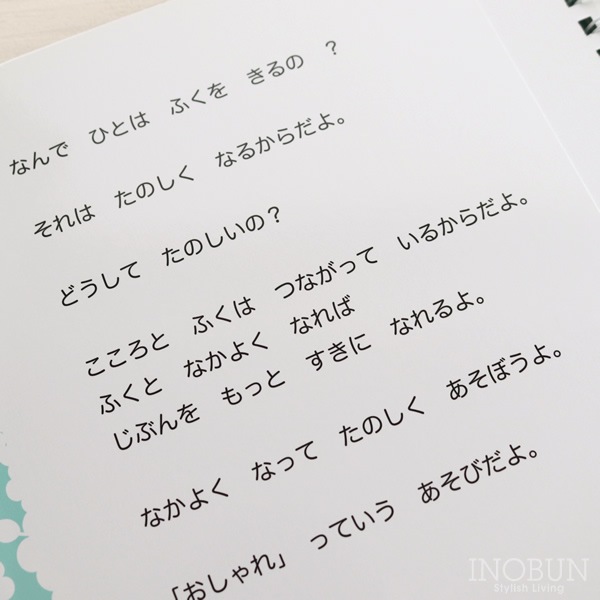 なんで　ひとは　ふくを　きるの　？
それは　たのしく　なるからだよ。
どうして　たのしいの？
こころと　ふくは　つながって　いるからだよ。
ふくと　なかよく　なれば
じぶんを　もっと　すきに　なれるよ。
なかよく　なって　たのしく　あそぼうよ。
「おしゃれ」　っていう　あそびだよ。
INOBUN
Stylish Living